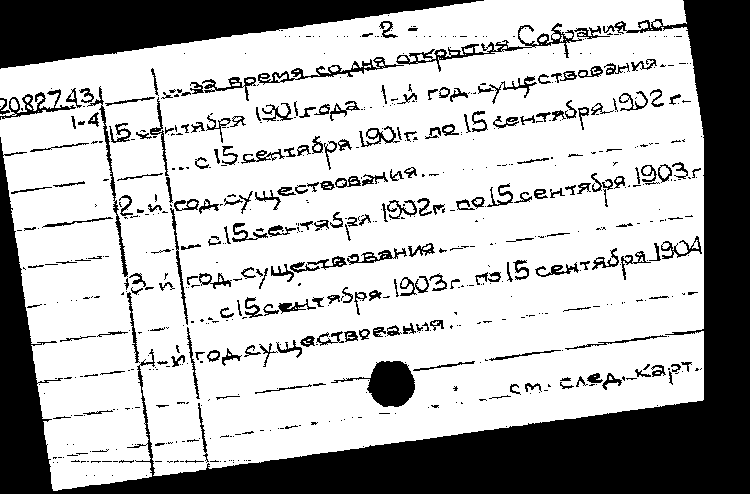 - 2 -
...за время со дня открытия Собрания по
2082743 1-4
15 сентября 1901 года 1-й год существования.
... с 15 сентября 1901 г. по 15 сентября 1902 г.
2-й год существования.
... с 15 сентября 1902 г. по 15 сентября 1903 г.
3-й год существования.
... с 15 сентября 1903 г. по 15 сентября 1904
4-й год существования.
см. след. карт.